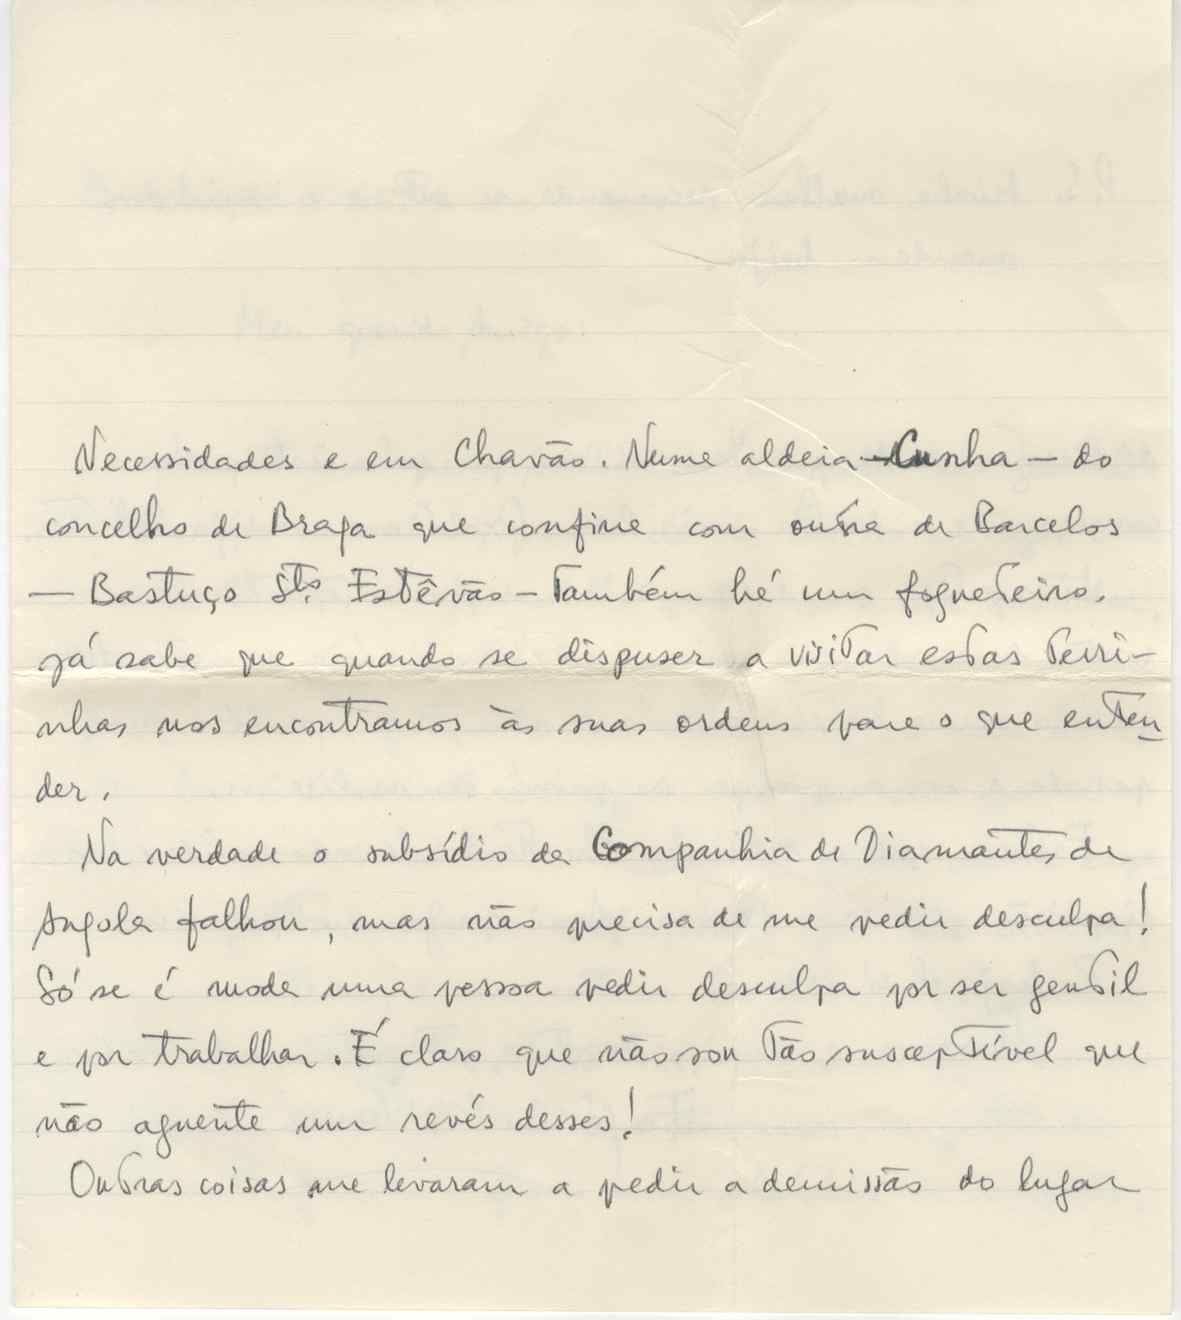 Necessidades e em Chavão. Numa aldeia – Cunha – do
concelho de Braga que confina com outra de Barcelos
— Bastuço Stº. Estêvão – também há um fogueteiro.
Já sabe que quando se dispuser a visitar estas terri-
nhas nos encontramos às suas ordens para o que enten
der.
Na verdade o subsídio da Companhia de Diamantes de
Angola falhou, mas não precisa de me pedir desculpa!
Só se é moda uma pessoa pedir desculpa por ser gentil
e por trabalhar. É claro que não sou tão susceptível que
não aguente um revés desses!
Outras coisas me levaram a pedir a demissão do lugar